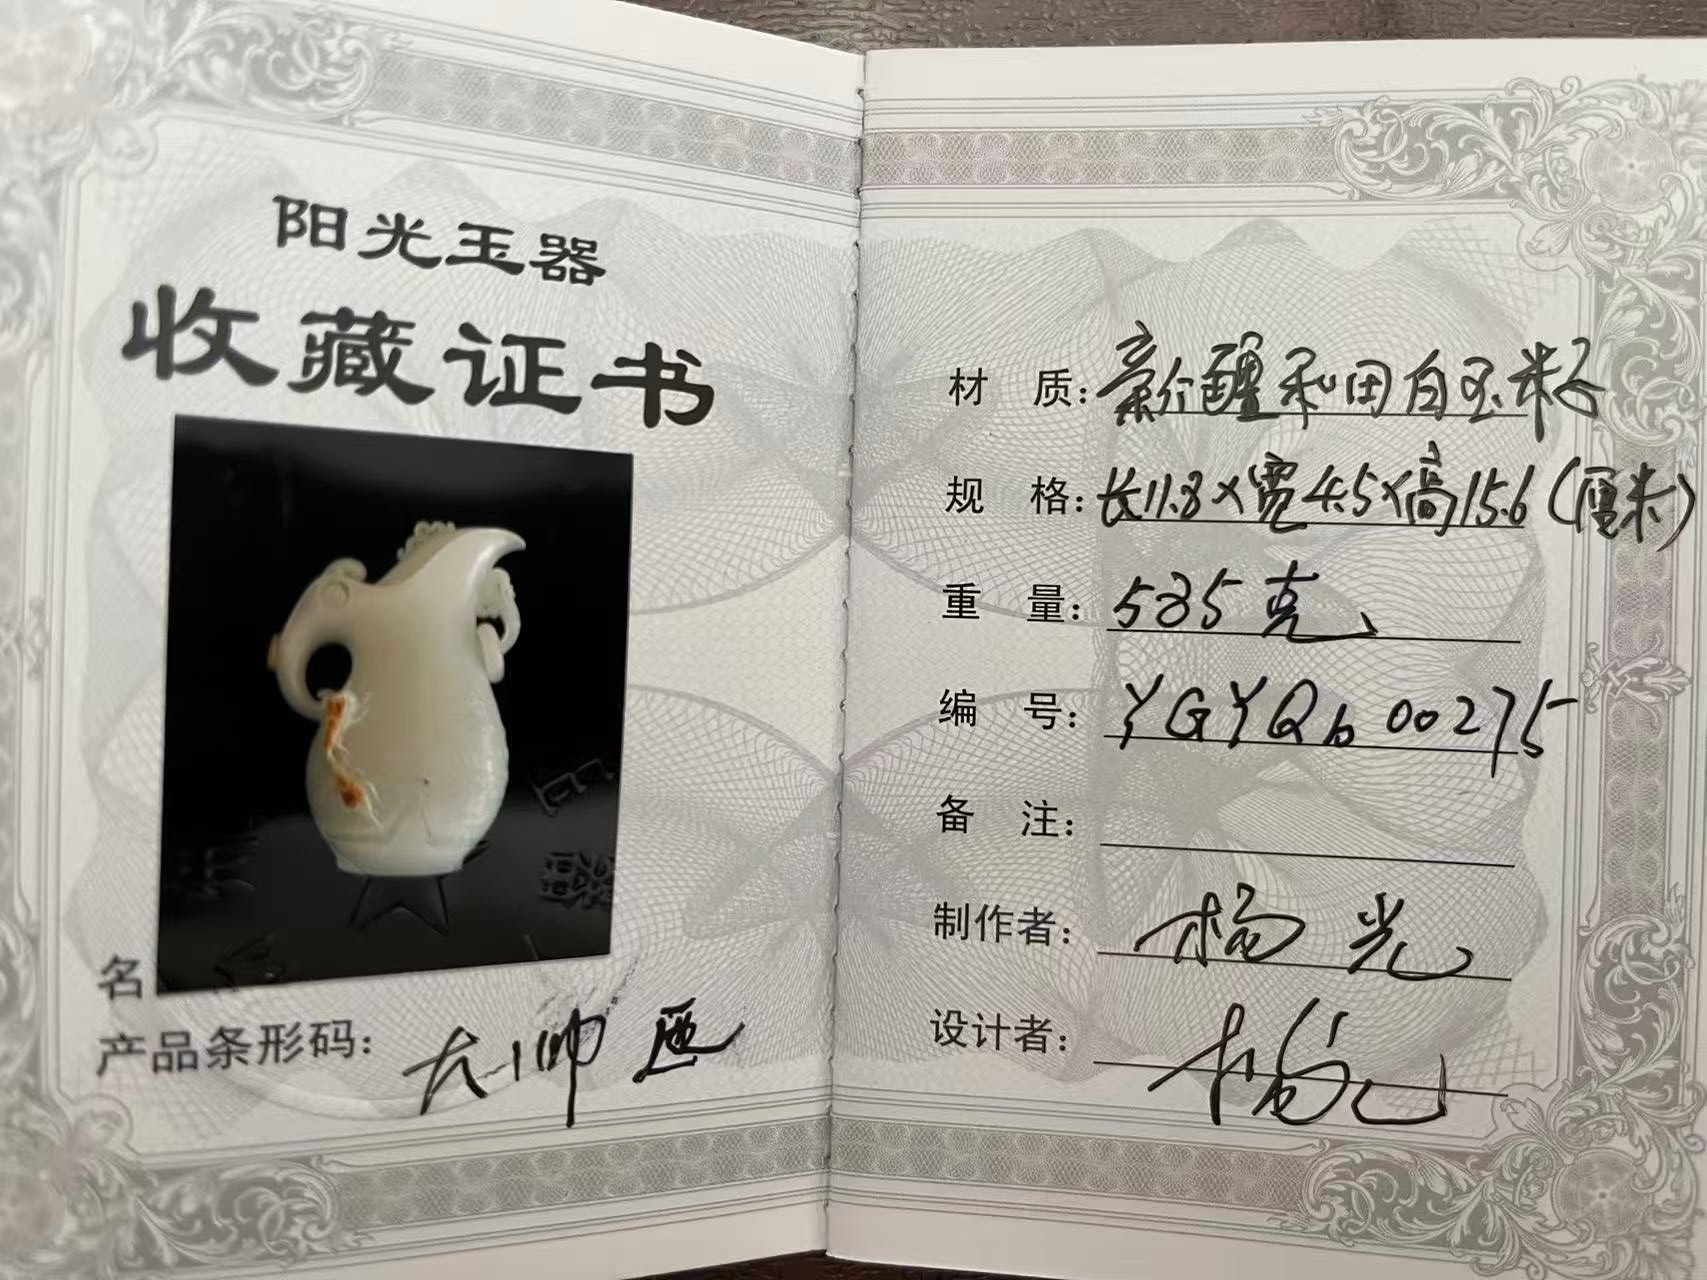 阳光玉器
收藏证书
名
产品条形码：大帅
材 质：新疆和田白玉籽
规 格：长11.8×宽4.5×高15.6（厘米）
重 量：535克
编 号：YGYQb00275
备 注：
制作者：杨光
设计者：杨光